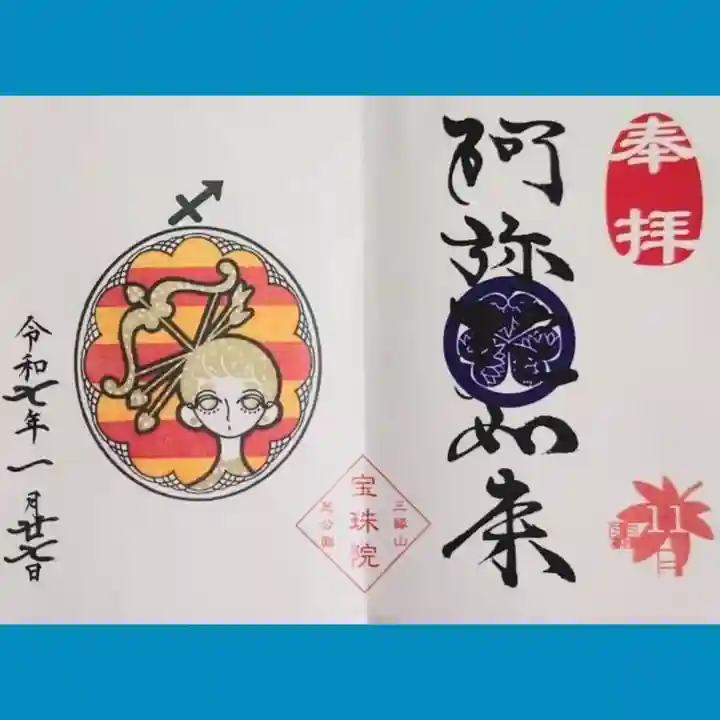 奉拝
阿弥陀如来
11月
三縁山
宝珠院
芝公園
令和七年一月廿七日